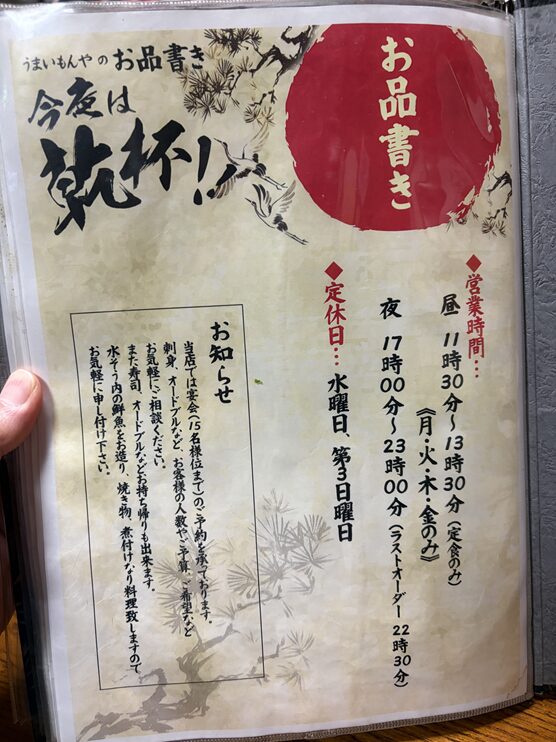 うまいもんや の お品書き
今夜は
乾杯!!
お品書き
◆営業時間…
昼 11時30分〜13時30分(定食のみ)
《月・火・木・金のみ》
夜 17時00分〜23時00分(ラストオーダー22時30分)
◆定休日… 水曜日、第3日曜日
お知らせ
当店では宴会(15名様位まで)のご予約を承っております。
刺身、オードブルなど、お客様の人数やご予算、ご希望など
お気軽にご相談ください。
また寿司、オードブルなどお持ち帰りも出来ます。
水そう内の鮮魚をお造り、焼き物、煮付けなり料理致しますので
お気軽に申し付け下さい。